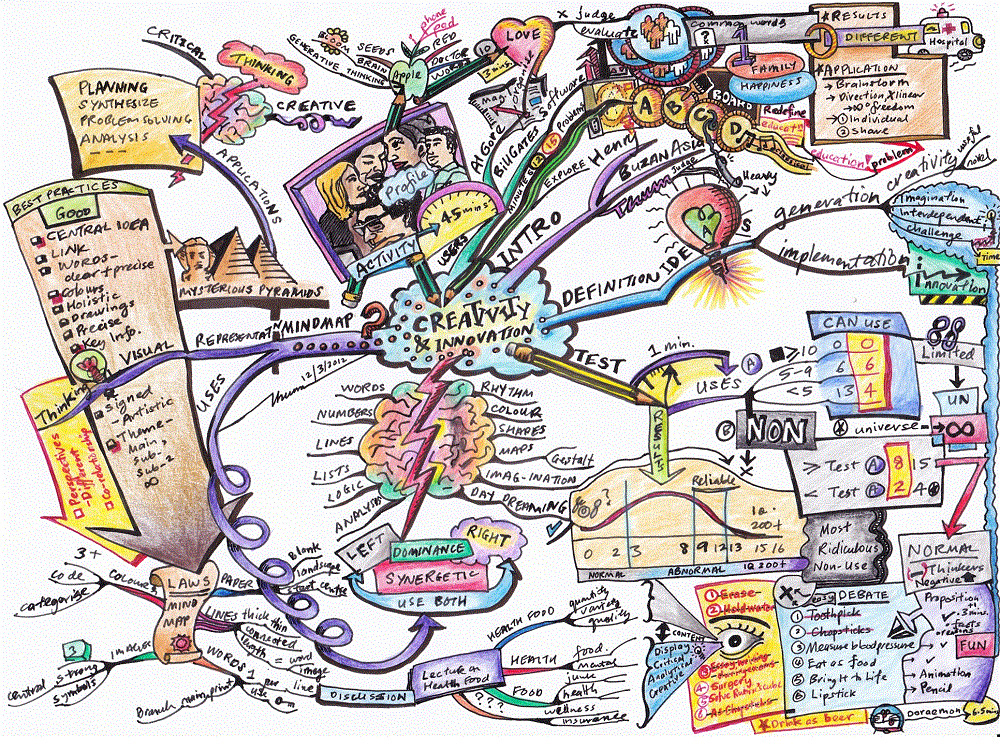 CREATIVITY
& INNOVATION
CRITICAL
THINKING
CREATIVE
PLANNING
SYNTHESIZE
PROBLEM SOLVING
ANALYSIS
APPLICATIONS
BLOOM SEEDS
BRAIN
GENERATIVE THINKING
Apple
phone
pod
RED
DOCTOR
WORDS
10
3 mins.
LOVE
x judge
evaluate
Profile
45 mins
ACTIVITY
USERS
Al Gore
Bill Gates
Software
Map
organise
MINUTES
12
15
Problem
EXPLORE
Henry
INTRO
BUZAN ASIA
Thum
Judge
common words
?
1
FAMILY
HAPPINESS
A B C D
BOARD
Redefine
educat
Education?
problem
* RESULTS
DIFFERENT
Hospital
* APPLICATION
→ Brainstorm
→ Direction X linear
→ 200% freedom
→ ① Individual
② share
DEFINITION
IDEAS
Heavy
generation
creativity
useful
novel
Imagination
Interdependent
challenge
Time
implementation
i
innovation
BEST PRACTICES
GOOD
CENTRAL IDEA
LINK
WORDS-
clear + precise
Colours
Holistic
Drawings
Precise
Key info.
VISUAL
Signed
- Artistic
Theme-
Main
Sub-1
Sub-2
∞
MYSTERIOUS PYRAMIDS
REPRESENTATN
MINDMAP
?
Thum 12/3/2012
USES
Thinking
Perspectives
- Different
Co-relationship
WORDS
NUMBERS
LINES
LISTS
LOGIC
ANALYSIS
RHYTHM
COLOUR
SHAPES
MAPS
Gestalt
IMAG-INATION
DAY DREAMING
LEFT
DOMINANCE
RIGHT
SYNERGETIC
USE BOTH
TEST
1 min.
USES
A
≥10
5-9
<5
CAN USE
0 0
6 6
13 4
Limited
UN
∞
B
NON
x universe =
≥ Test A 8 15
< Test A 2 4
RESULTS
Reliable
IQ
200+
0 2 3 8 9 12 13 15 16
NORMAL
ABNORMAL
IQ 200+
Most
Ridiculous
Non-Use
NORMAL
Thinkers
Negative
LAWS
MIND
MAP
3+
code
categorise
COLOURS
PAPER
Blank
landscape
start centre
LINES thick thin
connected
length = word
image
WORDS 1 per line
Branch main print
use
IMAGES
3
central
strong
symbols
DISCUSSION
Lecture on
Health Food
HEALTH FOOD
quantity
variety
quality
HEALTH
food.
mental
FOOD
junk
health
???
wellness
insurance
CONTENT
Display
Critical
Analytical
Creative
① Erase
② Hold water
③ Essay writing
④ Surgery
⑤ Solve Rubix's cube
⑥ As Chopsticks
* Drink as beer
easy
DEBATE
① Toothpick
② Chopsticks
③ Measure bloodpressure
④ Eat as food
⑤ Bring It to Life
⑥ Lipstick
Proposition
3 mins.
facts
reasons
FUN
→ Animation
→ Pencil
Doraemon
6.5 min